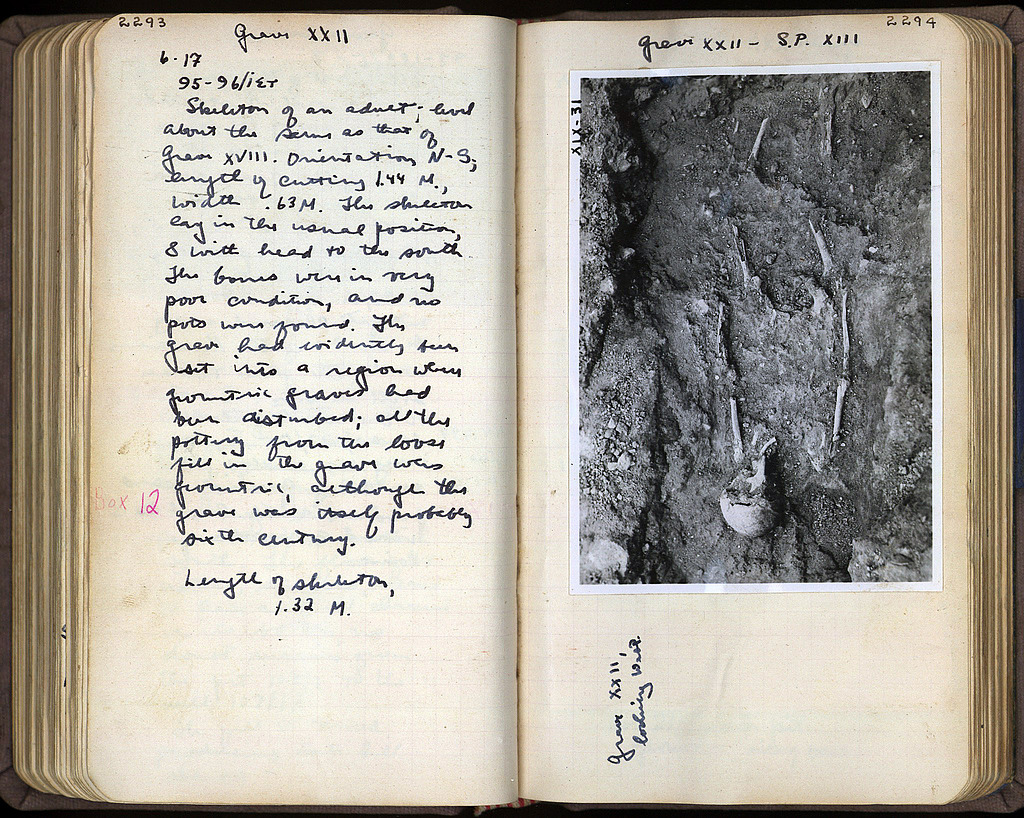 2293
Grave XXII
6-17
95-96/ΙΣΤ
Skeleton of an adult; level
about the same as that of
Grave XVIII. Orientation N-S;
length of cutting 1.44 M.,
width .63 M. The skeleton
lay in the usual position,
& with head to the south
The bones were in very
poor condition, and no
pots were found. The
grave had evidently been
set into a region where
geometric graves had
been disturbed; all the
pottery from the loose
fill in the grave was
geometric, although the
grave was itself probably
sixth century.
Box 12
Length of skeleton,
1.32 M.
2294
Grave XXII - S.P. XIII
XIX-31
Grave XXII,
looking West.